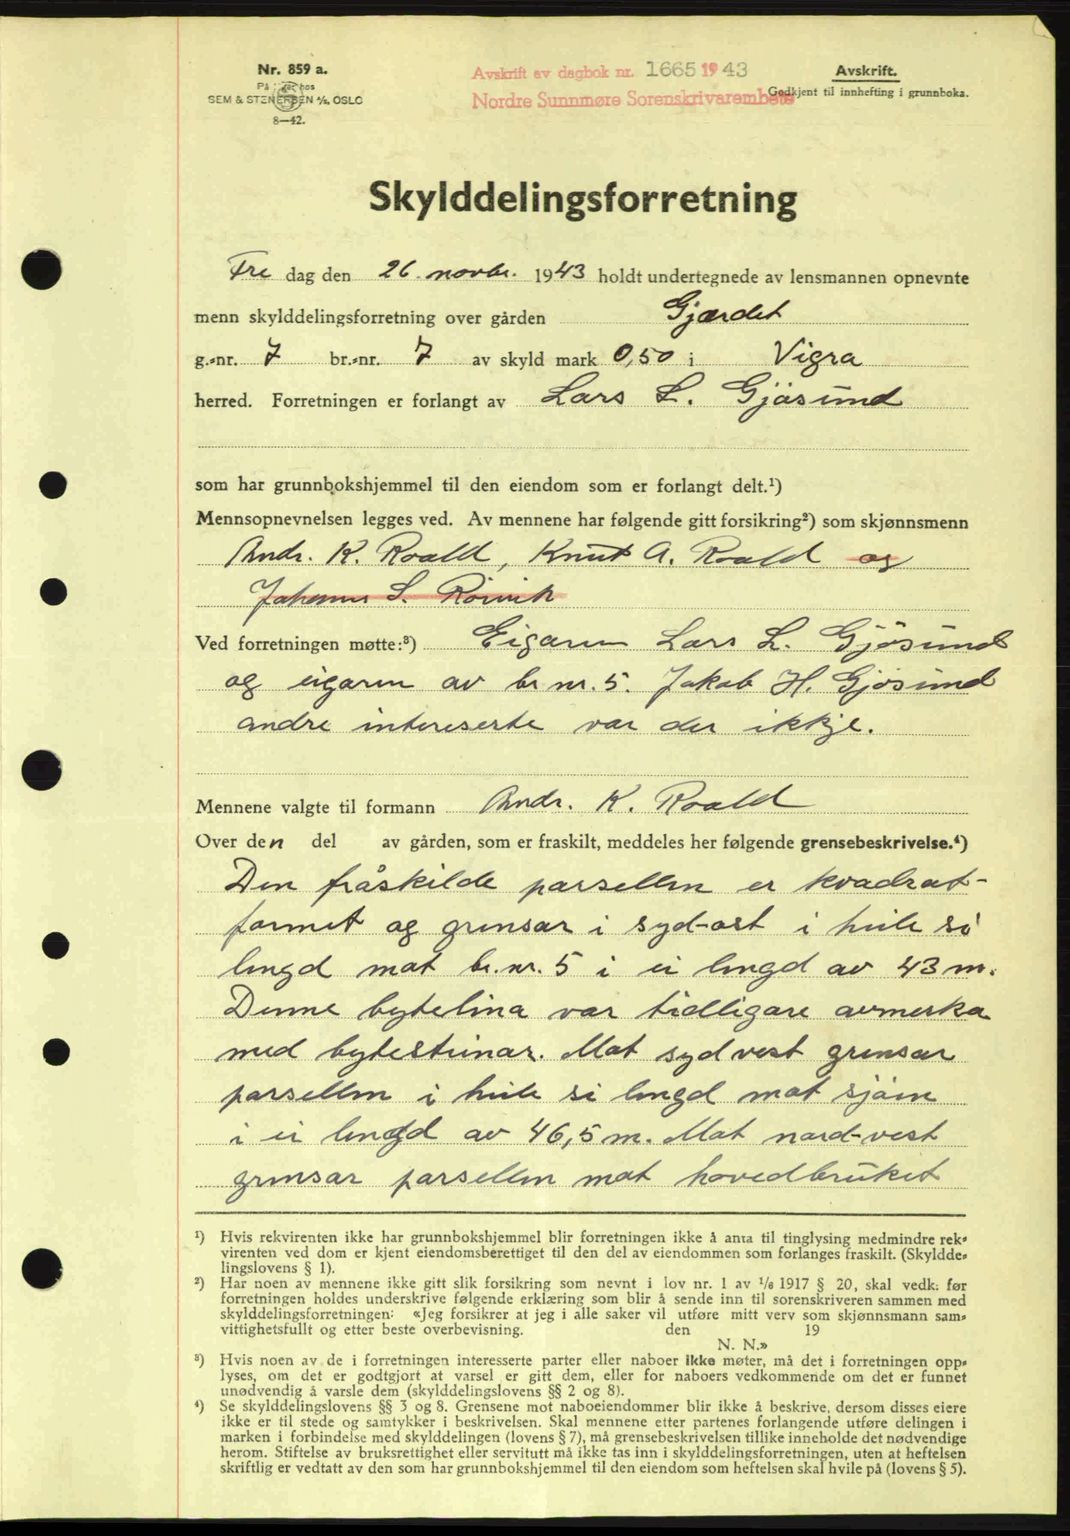 Nr. 859 a.
På hos
SEM & STENERSEN A/S, OSLO
8—42.
Avskrift av dagbok nr. 1665 1943
Nordre Sunnmøre Sorenskrivarembete
Avskrift.
Godkjent til innhefting i grunnboka.
Skylddelingsforretning
Fre dag den 26. novbr. 1943 holdt undertegnede av lensmannen opnevnte
menn skylddelingsforretning over gården Gjærdet
g.-nr. 7 br.-nr. 7 av skyld mark 0,50 i Vigra
herred. Forretningen er forlangt av Lars L. Gjøsund
som har grunnbokshjemmel til den eiendom som er forlangt delt.¹)
Mennsopnevnelsen legges ved. Av mennene har følgende gitt forsikring²) som skjønnsmenn
Andr. K. Roald, Knut A. Roald og
Johannes S. Rørvik
Ved forretningen møtte:³) Eigaren Lars L. Gjøsund
og eigaren av br. nr. 5. Jakob H. Gjøsund
andre intereserte var der ikkje.
Mennene valgte til formann Andr. K. Roald
Over den del av gården, som er fraskilt, meddeles her følgende grensebeskrivelse.⁴)
Den fråskilde parsellen er kvadrat-
formet og grensar i syd-ost i heile si
lengd mot br. nr. 5 i ei lengd av 43 m.
Denne bytelina var tidligare avmerka
med bytesteinar. Mot sydvest grensar
parsellen i heile si lengd mot sjøen
i ei lengd av 46,5 m. Mot nord-vest
grensar parsellen mot hovedbruket
¹) Hvis rekvirenten ikke har grunnbokshjemmel blir forretningen ikke å anta til tinglysing medmindre rek-
virenten ved dom er kjent eiendomsberettiget til den del av eiendommen som forlanges fraskilt. (Skyldde-
lingslovens § 1).
²) Har noen av mennene ikke gitt slik forsikring som nevnt i lov nr. 1 av 1/6 1917 § 20, skal vedk. før
forretningen holdes underskrive følgende erklæring som blir å sende inn til sorenskriveren sammen med
skylddelingsforretningen: «Jeg forsikrer at jeg i alle saker vil utføre mitt verv som skjønnsmann sam-
vittighetsfullt og etter beste overbevisning. den 19
N. N.»
³) Hvis noen av de i forretningen interesserte parter eller naboer ikke møter, må det i forretningen opp-
lyses, om det er godtgjort at varsel er gitt dem, eller for naboers vedkommende om det er funnet
unødvendig å varsle dem (skylddelingslovens §§ 2 og 8).
⁴) Se skylddelingslovens §§ 3 og 8. Grensene mot naboeiendommer blir ikke å beskrive, dersom disses eiere
ikke er til stede og samtykker i beskrivelsen. Skal mennene etter partenes forlangende utføre delingen i
marken i forbindelse med skylddelingen (lovens § 7), må grensebeskrivelsen tillike inneholde det nødvendige
herom. Stiftelse av bruksrettighet eller servitutt må ikke tas inn i skylddelingsforretningen, uten at heftelsen
skriftlig er vedtatt av den som har grunnbokshjemmel til den eiendom som heftelsen skal hvile på (lovens § 5).